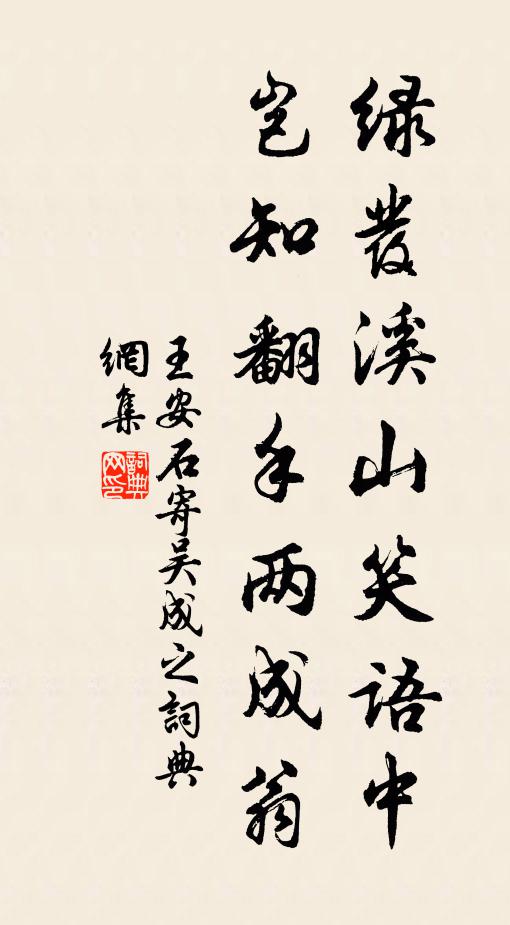 绿发溪山笑语中
岂知翻手两成翁
王安石寄吴成之詞典
網集
詞典网印